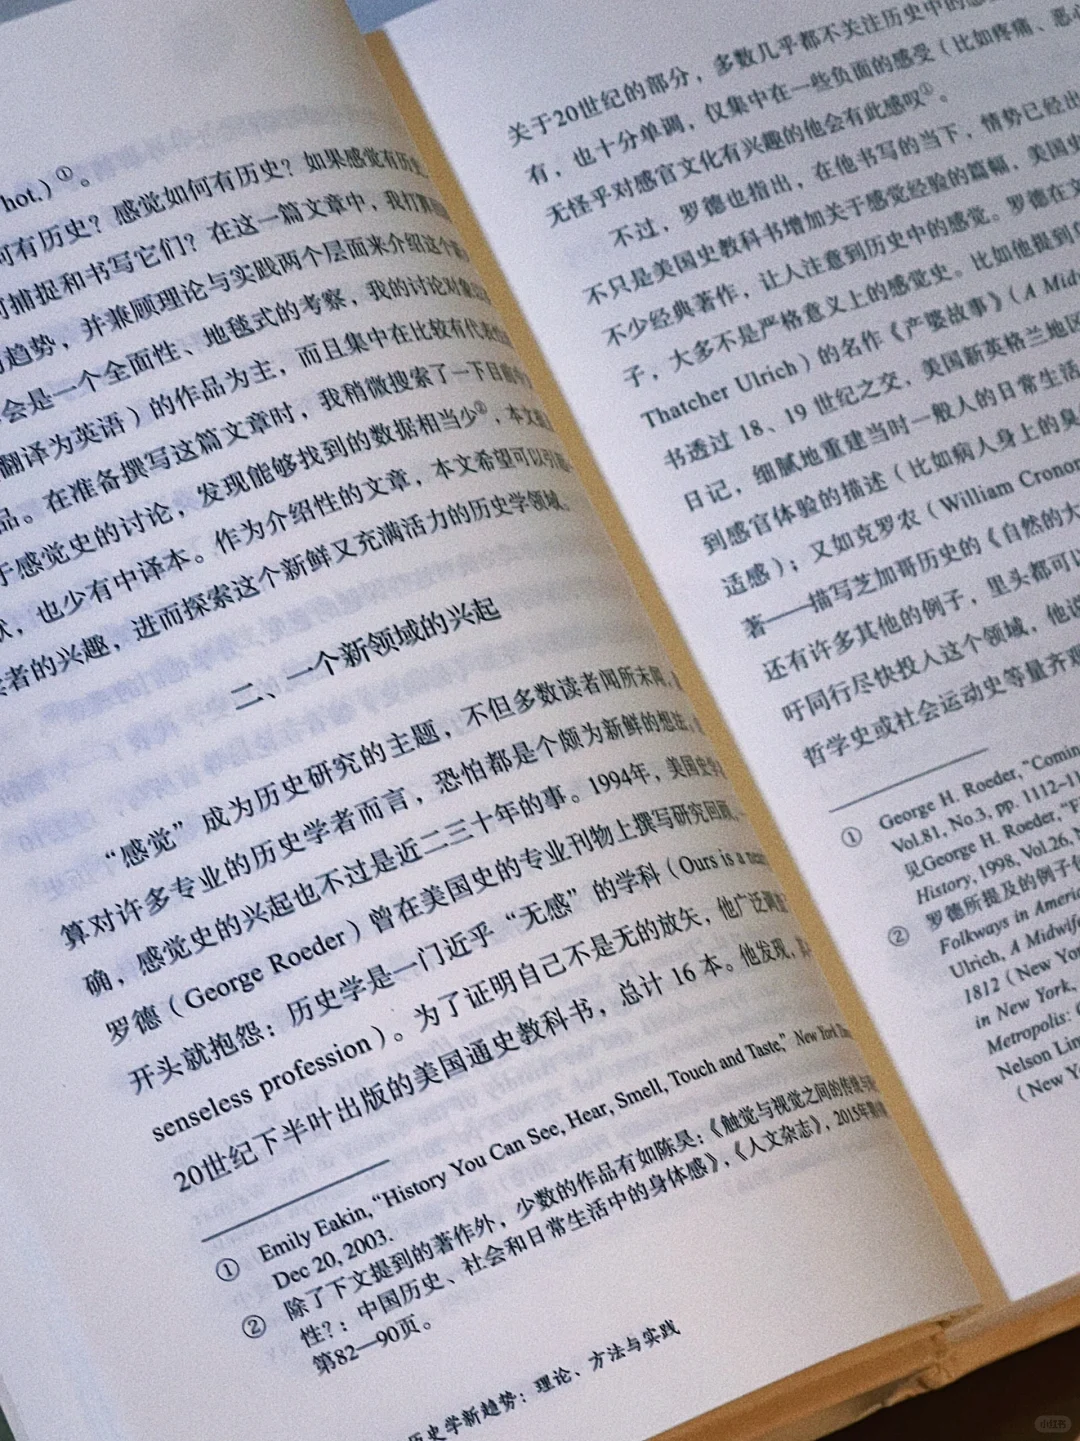 hot.）①。
何有历史？感觉如何有历史？如果感觉有历史，
可捕捉和书写它们？在这一篇文章中，我打算
趋势，并兼顾理论与实践两个层面来介绍这个
会是一个全面性、地毯式的考察，我的讨论对象
翻译为英语）的作品为主，而且集中在比较有代表
品。在准备撰写这篇文章时，我稍微搜索了一下目前
于感觉史的讨论，发现能够找到的数据相当少②，本文
，也少有中译本。作为介绍性的文章，本文希望可以引
者的兴趣，进而探索这个新鲜又充满活力的历史学领域。
二、一个新领域的兴起
“感觉”成为历史研究的主题，不但多数读者闻所未闻，
算对许多专业的历史学者而言，恐怕都是个颇为新鲜的想法，
确，感觉史的兴起也不过是近二三十年的事。1994年，美国史学
罗德（George Roeder）曾在美国史的专业刊物上撰写研究回顾，
开头就抱怨：历史学是一门近乎“无感”的学科（Ours is a
senseless profession）。为了证明自己不是无的放矢，他广泛调查
20世纪下半叶出版的美国通史教科书，总计 16 本。他发现，
① Emily Eakin, “History You Can See, Hear, Smell, Touch and Taste,” New York
Dec 20, 2003.
② 除了下文提到的著作外，少数的作品有如陈昊：《触觉与视觉之间的传统与
性？：中国历史、社会和日常生活中的身体感》，《人文杂志》，2015年第
第82—90页。
历史学新趋势：理论、方法与实践
关于20世纪的部分，多数几乎都不关注历史中的感
有，也十分单调，仅集中在一些负面的感受（比如疼痛、恶心
无怪乎对感官文化有兴趣的他会有此感叹①。
不过，罗德也指出，在他书写的当下，情势已经出
不只是美国史教科书增加关于感觉经验的篇幅，美国史
不少经典著作，让人注意到历史中的感觉。罗德在文
子，大多不是严格意义上的感觉史。比如他提到
Thatcher Ulrich）的名作《产婆故事》（A Mid
书透过 18、19 世纪之交，美国新英格兰地区
日记，细腻地重建当时一般人的日常生活
到感官体验的描述（比如病人身上的臭
适感）；又如克罗农（William Cronon
著——描写芝加哥历史的《自然的大
还有许多其他的例子，里头都可以
吁同行尽快投入这个领域，他说
哲学史或社会运动史等量齐观
① George H. Roeder, “Coming
Vol.81, No.3, pp. 1112–11
见George H. Roeder, “F
History, 1998, Vol.26, N
② 罗德所提及的例子
Folkways in Americ
Ulrich, A Midwife
1812（New York
in New York,
Metropolis:
Nelson Lim
（New Yor
小红书